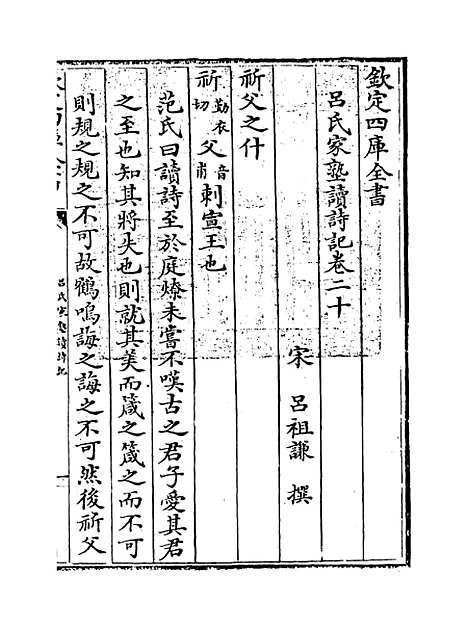 欽定四庫全書
呂氏家塾讀詩記卷二十
宋 呂祖謙 撰
祈父之什
祈勤衣切父音甫刺宣王也
范氏曰讀詩至於庭燎未嘗不嘆古之君子愛其君
之至也知其將失也則就其美而箴之箴之而不可
則規之規之不可故鶴鳴誨之誨之不可然後祈父
呂氏家塾讀詩記
一